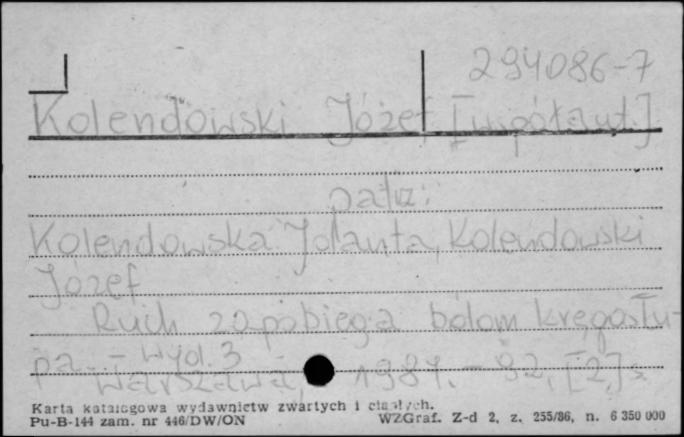 294086-7
Kolendowski Józef [współaut.]
patrz:
Kolendowska Jolanta, Kolendowski
Józef
Ruch zapobiega bólom kręgosłu-
pa. - Wyd. 3
Warszawa, 1987. - 92, [2] s.
Karta katalogowa wydawnictw zwartych i ciągłych.
Pu-B-144 zam. nr 446/DW/ON WZGraf. Z-d 2, z. 255/86, n. 6 350 000